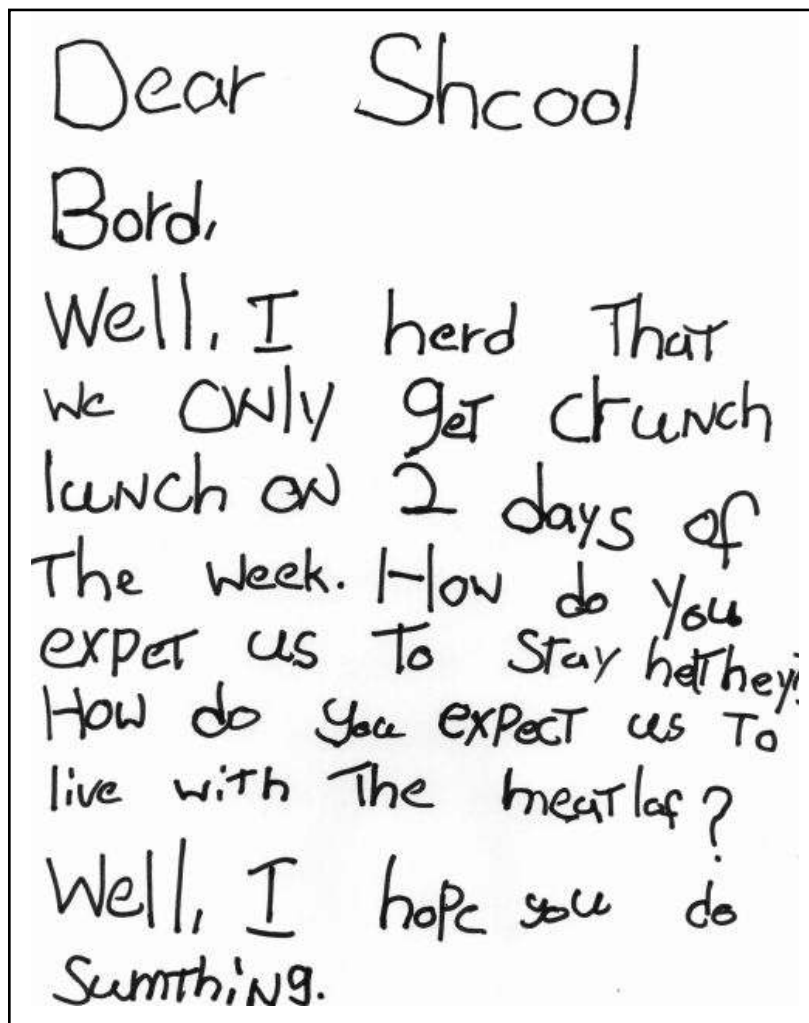 Dear Shcool
Bord,
Well, I herd That
we ONly geT cruNch
luNch oN 2 days of
The week. How do you
expeT us To stay helThey?
How do you expecT us To
live wiTh The meaTlof?
Well, I hope you do
SumThiNg.